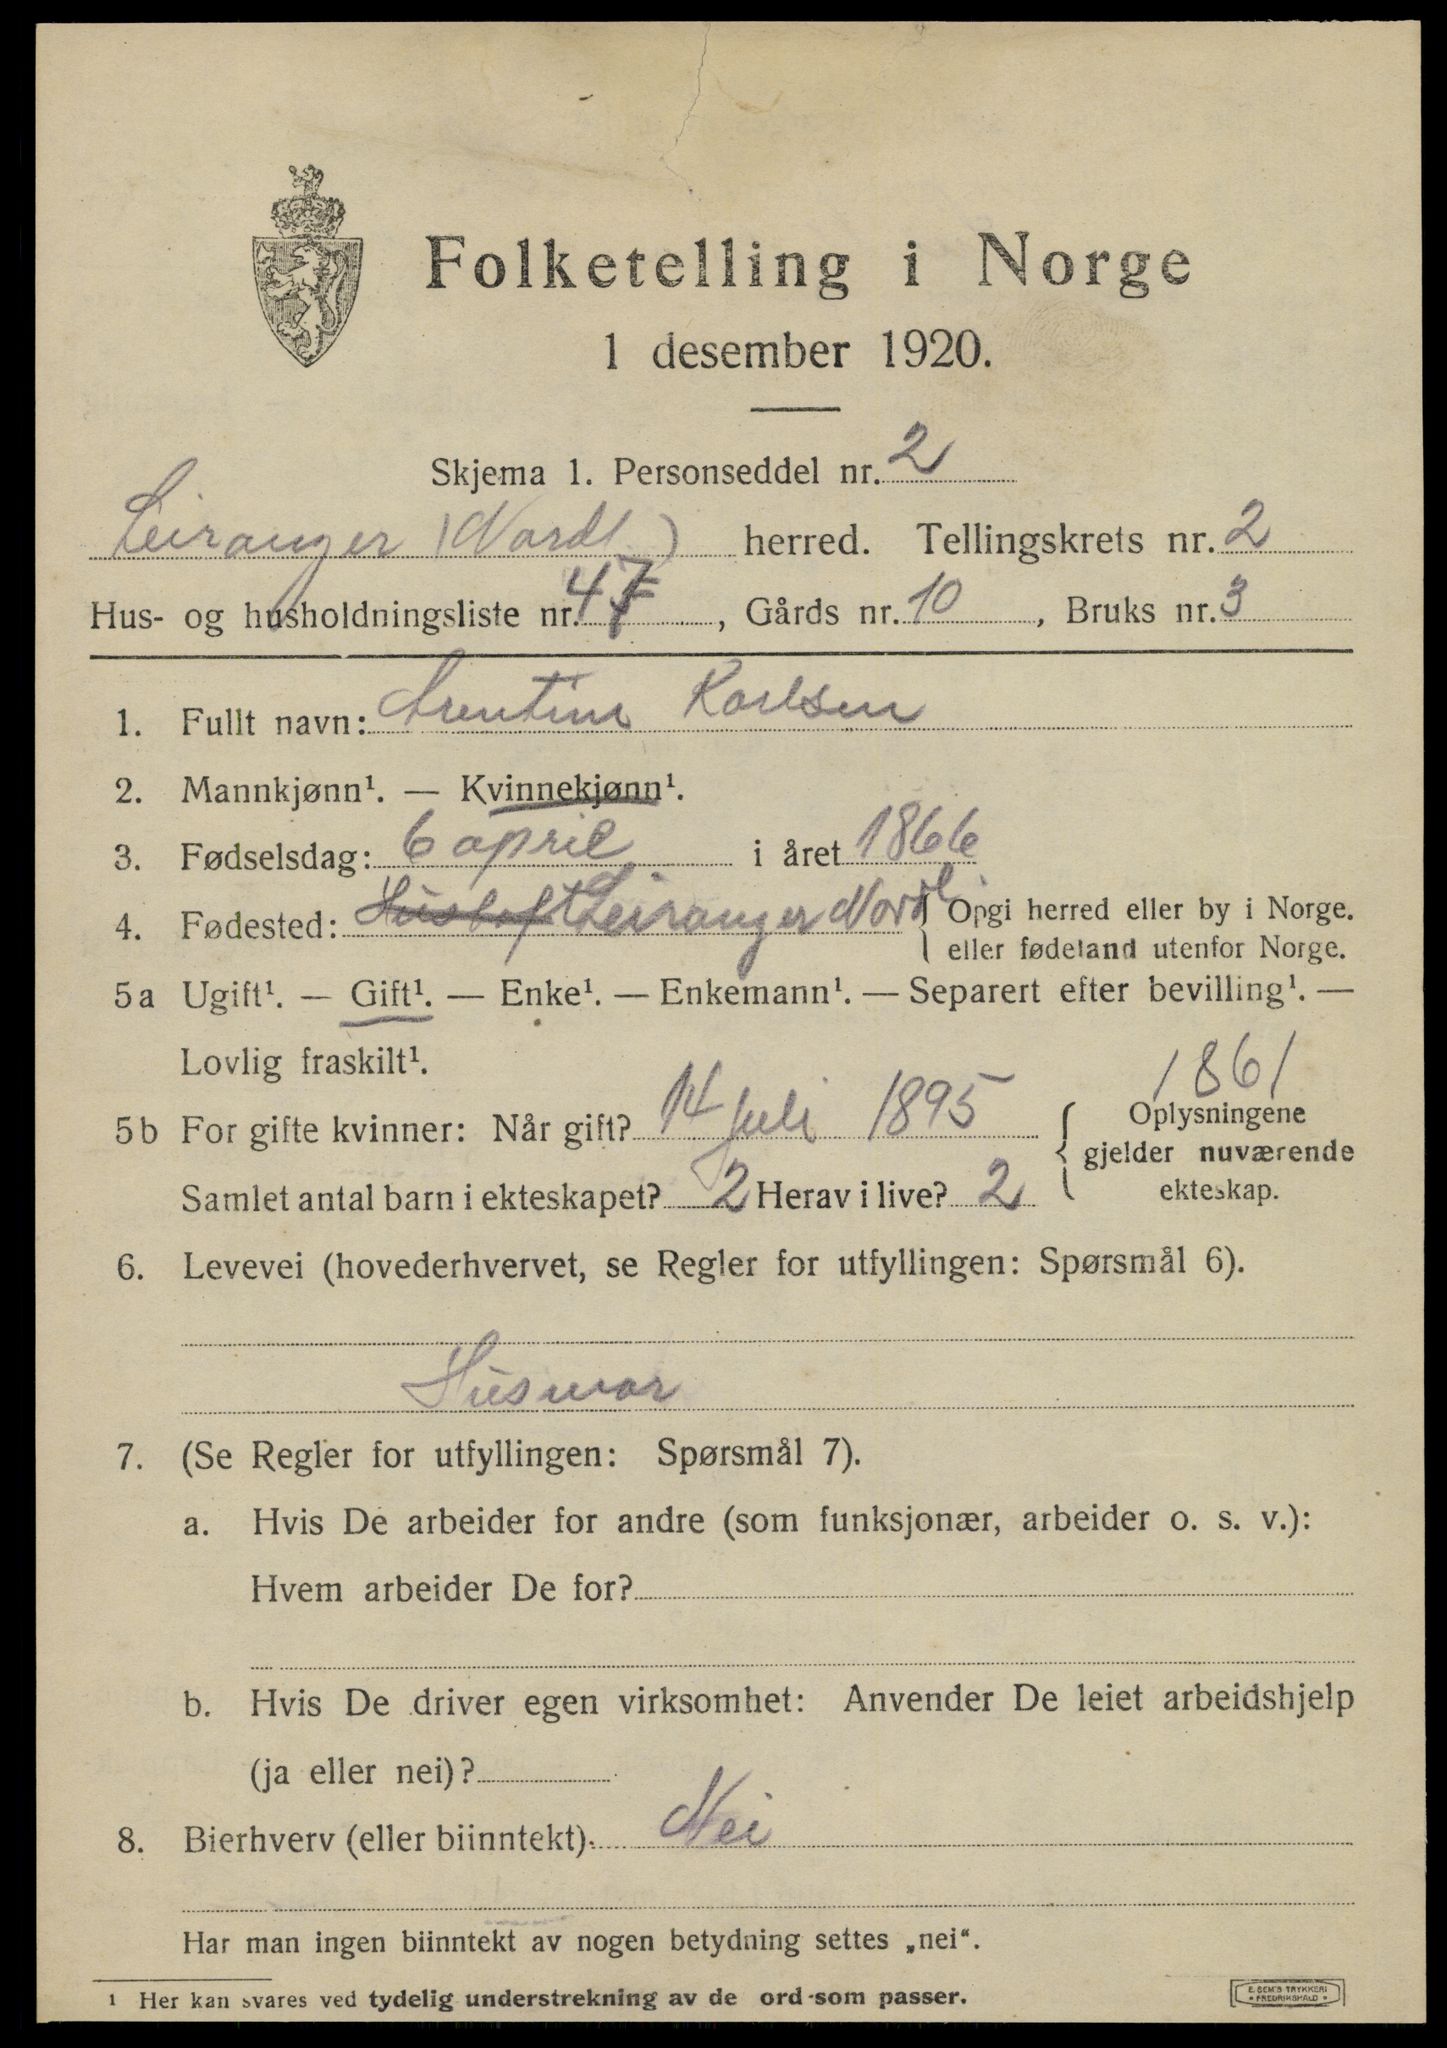 Folketelling i Norge
1 desember 1920.
Skjema 1. Personseddel nr. 2
Leiranger (Nordl.) herred. Tellingskrets nr. 2
Hus- og husholdningsliste nr. 47, Gårds nr. 10, Bruks nr. 3
1. Fullt navn: Arentine Karlsen
2. Mannkjønn¹. — Kvinnekjønn¹.
3. Fødselsdag: 6 april i året 1866
4. Fødested: Leiranger Nordl. { Opgi herred eller by i Norge.
eller fødeland utenfor Norge.
5a Ugift¹. — Gift¹. — Enke¹. — Enkemann¹. — Separert efter bevilling¹. —
Lovlig fraskilt¹.
1861
5b For gifte kvinner: Når gift? 14 Juli 1895 { Oplysningene
gjelder nuværende
Samlet antal barn i ekteskapet? 2 Herav i live? 2 ekteskap.
6. Levevei (hovederhvervet, se Regler for utfyllingen: Spørsmål 6).
Husmor
7. (Se Regler for utfyllingen: Spørsmål 7).
a. Hvis De arbeider for andre (som funksjonær, arbeider o. s. v.):
Hvem arbeider De for?
b. Hvis De driver egen virksomhet: Anvender De leiet arbeidshjelp
(ja eller nei)?
8. Bierhverv (eller biinntekt). Nei
Har man ingen biinntekt av nogen betydning settes „nei“.
¹ Her kan svares ved tydelig understrekning av de ord som passer.
E. SEM'S TRYKKERI
FREDRIKSHALD